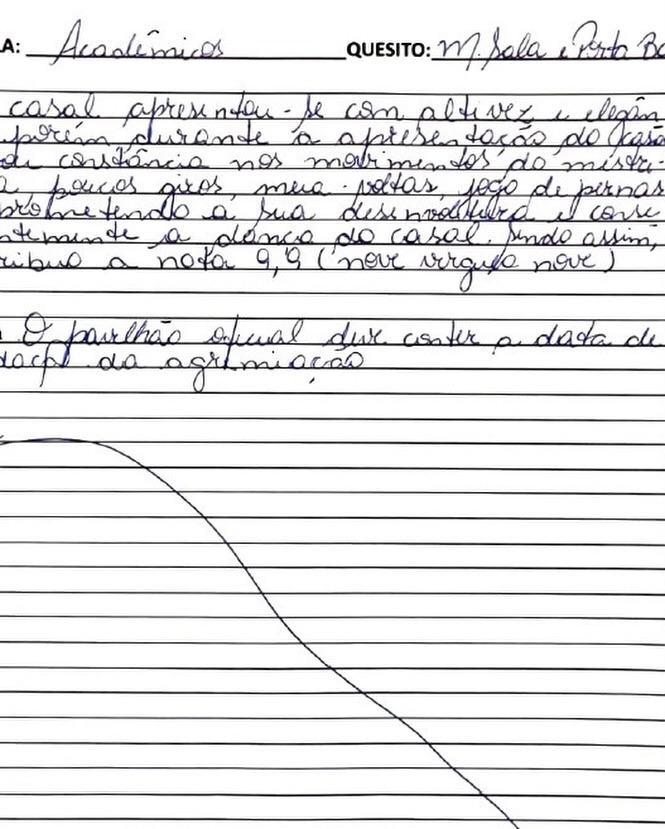 A: Acadêmicos QUESITO: M. Sala e Porta Ba
casal apresentou-se com altivez e elegân
porém durante a apresentação do casa
ou constância nos movimentos do mestri-
a, poucos giros, meia-voltas, jogo de pernas
prometendo a sua desenvoltura e conse
ntemente a dança do casal. Sendo assim,
ribuo a nota 9,9 (nove vírgula nove)
O pavilhão oficial deve conter a data de
da agremiação